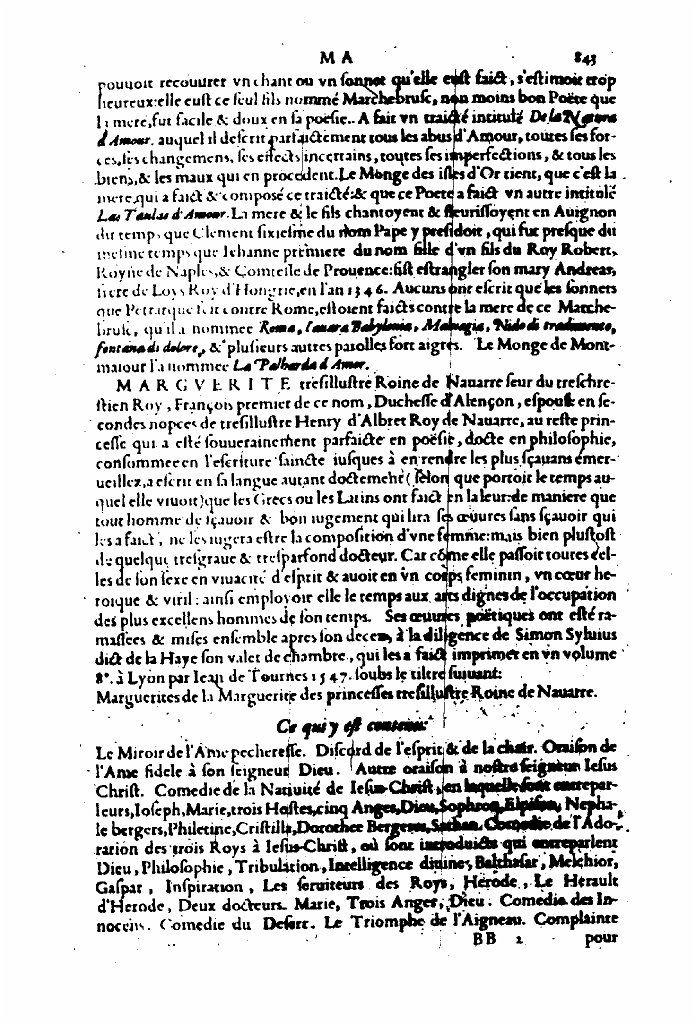 MA 843
pouuoit recouurer vn chant ou vn sonnet qu'elle eust faict, s'estimoit trop
heureux: elle eust ce seul fils nommé Marchebrusc, non moins bon Poëte que
la mere, fut facile & doux en sa poësie. A fait vn traicté intitulé De la Natura
d'Amour. auquel il descrit parfaictement tous les abus d'Amour, toutes ses for-
ces, ses changemens, ses effects incertains, toutes ses imperfections, & tous les
biens, & les maux qui en procedent. Le Monge des isles d'Or tient, que c'est la
mere, qui a faict & composé ce traicté: & que ce Poete a faict vn autre intitulé
Las Taulas d'Amour. La mere & le fils chantoyent & fleurissoyent en Auignon
du temps que Clement sixiesme du nom Pape y presidoit, qui fut presque du
mesme temps que Iehanne premiere du nom fille d'vn fils du Roy Robert,
Royne de Naples, & Comtesse de Prouence: fist estrangler son mary Andreas,
frere de Loys Roy d'Hongrie, en l'an 1346. Aucuns ont escrit que les sonnets
que Petrarque feit contre Rome, estoient faicts contre la mere de ce Marche-
brusc, qu'il a nommee Roma, l'auara Babylonia, Maluagia, Nido di tradimento,
fontana di dolore, & plusieurs autres parolles fort aigres. Le Monge de Mont-
maiour l'a nommee La Palharda d'Amor.
MARGVERITE tresillustre Roine de Nauarre seur du treschre-
stien Roy, François premier de ce nom, Duchesse d'Alençon, espouse en se-
condes nopces de tresillustre Henry d'Albret Roy de Nauarre, au reste prin-
cesse qui a esté souuerainement parfaicte en poësie, docte en philosophie,
consommee en l'escriture saincte iusques à en rendre les plus sçauans émer-
ueillez, a escrit en sa langue autant doctement (selon que portoit le temps au-
quel elle viuoit) que les Grecs ou les Latins ont faict en la leur: de maniere que
tout homme de sçauoir & bon iugement qui lira ses œuures sans sçauoir qui
les a faict, ne les iugera estre la composition d'vne femme: mais bien plustost
de quelque tresgraue & tresparfond docteur. Car côme elle passoit toutes cel-
les de son sexe en viuacité d'esprit & auoit en vn corps feminin, vn cœur he-
roique & viril: ainsi employoit elle le temps aux arts dignes de l'occupation
des plus excellens hommes de son temps. Ses œuures poëtiques ont esté ra-
massées & mises ensemble apres son decez, à la diligence de Simon Syluius
dict de la Haye son valet de chambre, qui les a faict imprimer en vn volume
8°. à Lyon par Iean de Tournes 1547. soubs le tiltre suiuant:
Marguerites de la Marguerite des princesses tresillustre Roine de Nauarre.
Ce qui y est contenu.
Le Miroir de l'Ame pecheresse. Discord de l'esprit & de la chair. Oraison de
l'Ame fidele à son seigneur Dieu. Autre oraison à nostre seigneur Iesus
Christ. Comedie de la Natiuité de Iesus-Christ, en laquelle sont entrepar-
leurs, Ioseph, Marie, trois Hostes, cinq Anges, Dieu, Sophron, Elpison, Nepha-
le bergers, Philetine, Cristilla, Dorothee Bergeres, Sathan. Comedie de l'Ado-
ration des trois Roys à Iesus-Christ, où sont introduicts qui entreparlent
Dieu, Philosophie, Tribulation, Intelligence diuine, Balthasar, Melchior,
Gaspar, Inspiration, Les seruiteurs des Roys, Hérode, Le Herault
d'Herode, Deux docteurs. Marie, Trois Anges, Dieu. Comedie des In-
nocens. Comedie du Desert. Le Triomphe de l'Aigneau. Complainte
BB 2 pour